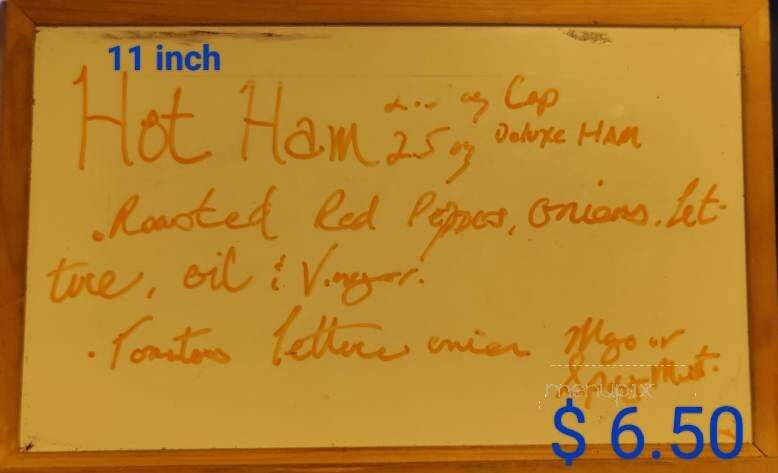 11 inch
Hot Ham oz Cap
2.5 oz Deluxe HAM
. Roasted Red Peppers, onions. Let-
tuce, oil & Vinegar.
. Tomatoes lettuce onion Mayo or
Spicy Must.
menupix
$ 6.50